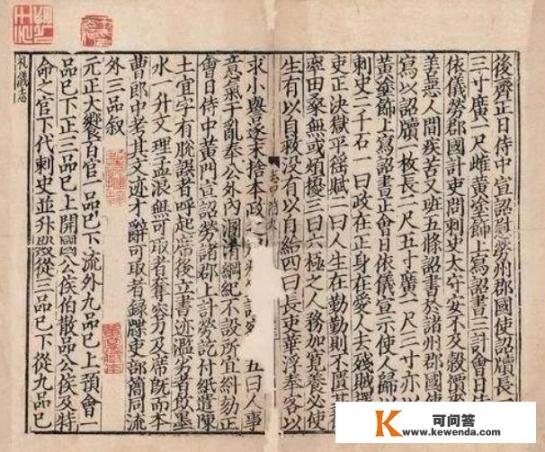 後齊正日侍中宣詔慰勞州郡國使詔牘長一
三寸廣一尺雌黃塗飾上寫詔書三計會日侍
依儀勞郡國計吏問刺史太守安不及穀價麥
善惡人間疾苦又班五條詔書於諸州郡國使
寫以詔牘一枚長二尺五寸廣一尺三寸亦以
黃塗飾上寫詔書正會日依儀宣示使人歸以
刺史二千石一曰政在正身在愛人去殘賊
吏正決獄平徭賦二曰人生在勤勤則不匱其
率田桑無或煩擾三曰六極之人務加寬養必使
生有以自救沒有以自給四曰長吏華浮奉客以
求小譽逐末捨本政之
五曰人事
意氣干亂奉公外內溷淆綱紀不設所宜糾劾正
會日侍中黃門宣詔勞諸郡上計勞訖付紙遣陳
土宜字有脫誤者呼起席後立書迹濫劣者飲墨
水一升文理孟浪無可取者奪容刀及席既而本
曹郎中考其文迹才辭可取者錄牒吏部簡同流
外三品叙
元正大饗百官一品已下流外九品已上預會一
品已下正三品已上開國公侯伯散品公侯及特
命之官下代刺史並升殿從三品已下從九品已
礼儀志
K 可问答
www.kewenda.com